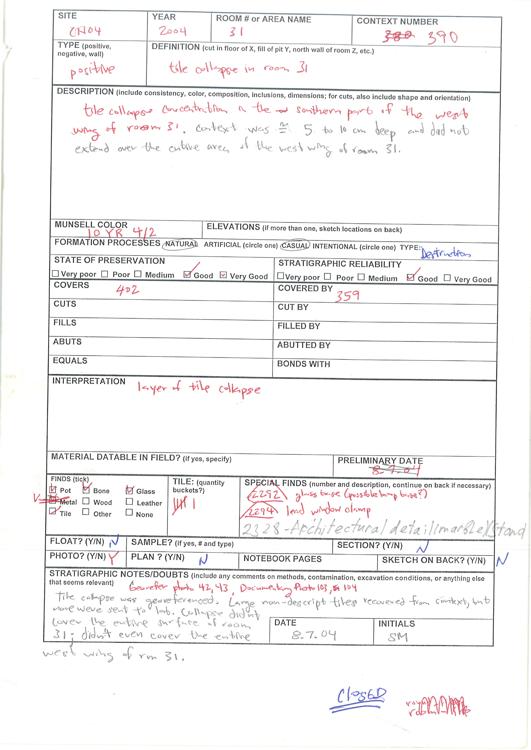 SITE YEAR ROOM # or AREA NAME CONTEXT NUMBER
CN04 2004 31 380 390
TYPE (positive, negative, wall) DEFINITION (cut in floor of X, fill of pit Y, north wall of room Z, etc.)
positive tile collapse in room 31
DESCRIPTION (include consistency, color, composition, inclusions, dimensions; for cuts, also include shape and orientation)
tile collapse concentration in the southern part of the west
wing of room 31. Context was ≅ 5 to 10 cm deep and did not
extend over the entire area of the west wing of room 31.
MUNSELL COLOR ELEVATIONS (if more than one, sketch locations on back)
10 YR 4/2
FORMATION PROCESSES NATURAL ARTIFICIAL (circle one) CASUAL INTENTIONAL (circle one) TYPE: Destruction
STATE OF PRESERVATION STRATIGRAPHIC RELIABILITY
Very poor Poor Medium Good Very Good Very poor Poor Medium Good Very Good
COVERS 402 COVERED BY 359
CUTS CUT BY
FILLS FILLED BY
ABUTS ABUTTED BY
EQUALS BONDS WITH
INTERPRETATION layer of tile collapse
MATERIAL DATABLE IN FIELD? (if yes, specify) PRELIMINARY DATE
8.7.04
FINDS (tick) TILE: (quantity buckets?) SPECIAL FINDS (number and description, continue on back if necessary)
Pot Bone Glass 2292 glass base (possible lamp base?)
Metal Wood Leather 2294 lead window clamp
Tile Other None 2328 - Architectural detail (marble)
FLOAT? (Y/N) N SAMPLE? (if yes, # and type) SECTION? (Y/N) N
PHOTO? (Y/N) Y PLAN ? (Y/N) N NOTEBOOK PAGES SKETCH ON BACK? (Y/N) N
STRATIGRAPHIC NOTES/DOUBTS (include any comments on methods, contamination, excavation conditions, or anything else
that seems relevant) Georefer photo 42, 43, Documentary Photo 103, 104
Tile collapse was georeferenced. Large non-descript tiles recovered from context, but
none were sent to lab. Collapse didn't
cover the entire surface of room
31; didn't even cover the entire
west wing of rm 31.
DATE INITIALS
8.7.04 SM
CLOSED